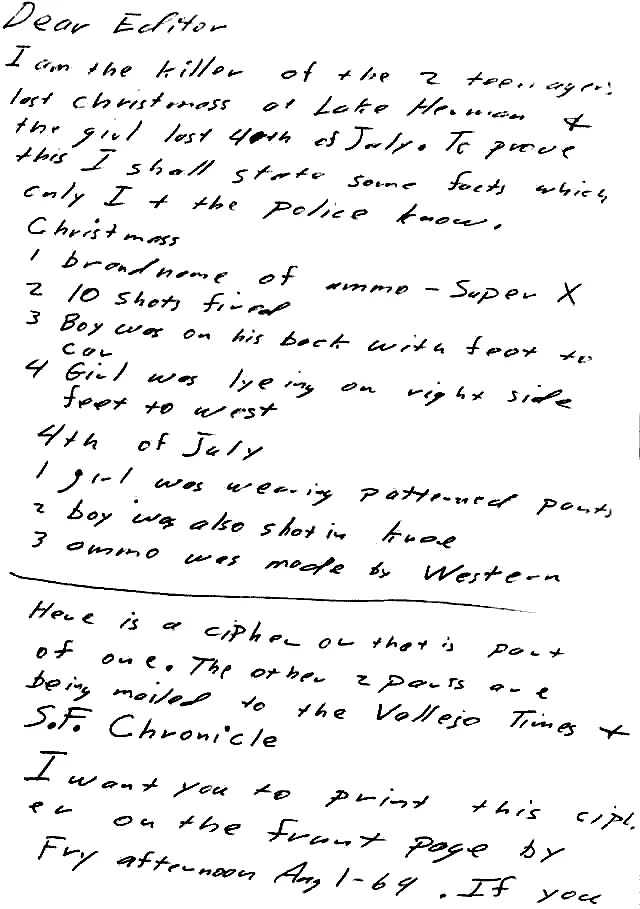 Dear Editor
I am the killer of the 2 teenagers
last Christmass at Lake Herman &
the girl last 4th of July. To prove
this I shall state some facts which
only I + the police know.
Christmass
1 brand name of ammo - Super X
2 10 shots fired
3 Boy was on his back with feet to
car
4 Girl was lyeing on right side
feet to west
4th of July
1 girl was wearing patterned pants
2 boy was also shot in knee
3 ammo was made by Western
Here is a cipher or that is part
of one. The other 2 parts are
being mailed to the Vallejo Times +
S.F. Chronicle
I want you to print this ciph-
er on the front page by
Fry afternoon Aug 1-69. If you